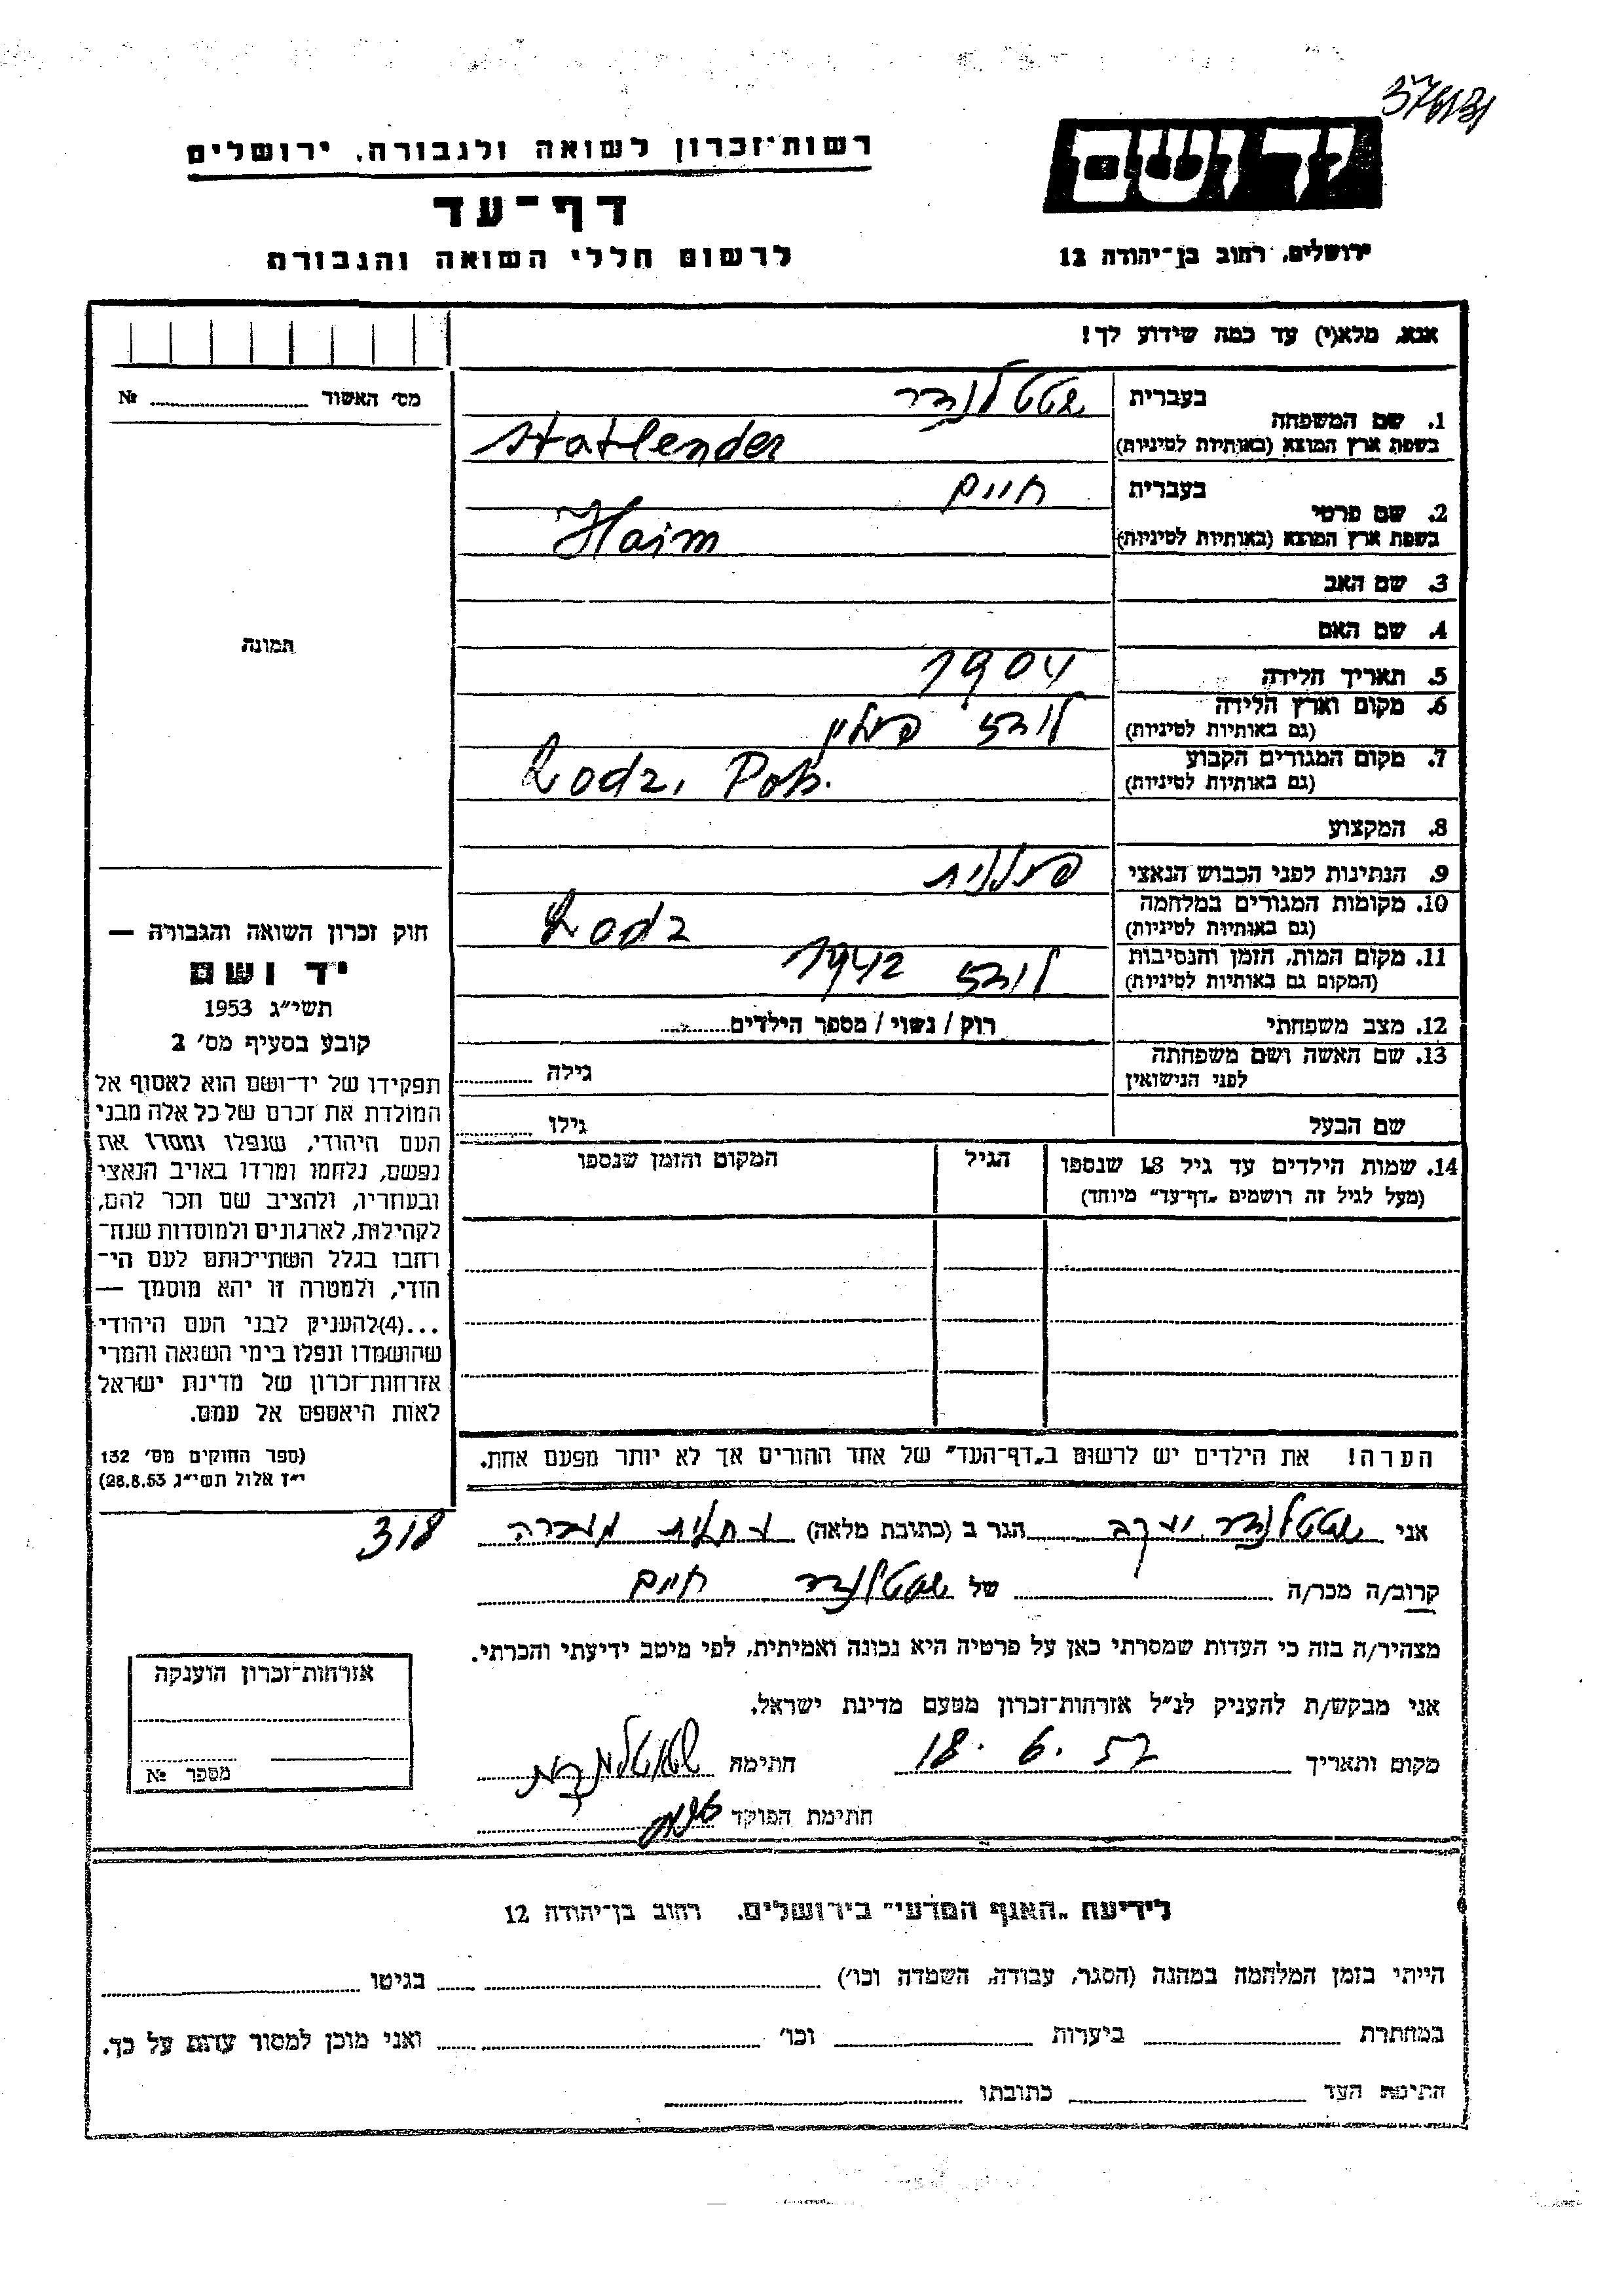 רשות־זכרון לשואה ולגבורה, ירושלים
דף־עד
לרשום חללי השואה והגבורה
יד ושם
ירושלים, רחוב בן־יהודה 12
אנא, מלא(י) עד כמה שידוע לך!
מס׳ האשור № 
1. שם המשפחה
בעברית שטטלנדר
בשפת ארץ המוצא (באותיות לטיניות) Statlender
2. שם פרטי
בעברית חיים
בשפת ארץ המוצא (באותיות לטיניות) Haim
3. שם האב
4. שם האם
5. תאריך הלידה 1904
6. מקום וארץ הלידה לודז פולין
(גם באותיות לטיניות)
7. מקום המגורים הקבוע Lodz, Pol.
(גם באותיות לטיניות)
8. המקצוע
9. הנתינות לפני הכבוש הנאצי פולנית
10. מקומות המגורים במלחמה Lodz
(גם באותיות לטיניות)
11. מקום המות, הזמן והנסיבות לודז 1942
(המקום גם באותיות לטיניות)
12. מצב משפחתי רוק / נשוי / מספר הילדים
13. שם האשה ושם משפחתה גילה
לפני הנישואין
שם הבעל גילו
14. שמות הילדים עד גיל 18 שנספו הגיל המקום והזמן שנספו
(מעל לגיל זה רושמים „דף־עד״ מיוחד)
תמונה
חוק זכרון השואה והגבורה —
יד ושם
תשי״ג 1953
קובע בסעיף מס׳ 2
תפקידו של יד־ושם הוא לאסוף אל
המולדת את זכרם של כל אלה מבני
העם היהודי, שנפלו ומסרו את
נפשם, נלחמו ומרדו באויב הנאצי
ובעוזריו, ולהציב שם וזכר להם,
לקהילות, לארגונים ולמוסדות שנח־
רבו בגלל השתייכותם לעם הי־
הודי, ולמטרה זו יהא מוסמך —
...(4)להעניק לבני העם היהודי
שהושמדו ונפלו בימי השואה והמרי
אזרחות־זכרון של מדינת ישראל
לאות היאספם אל עמם.
(ספר החוקים מס׳ 132
י״ז אלול תשי״ג 28.8.53)
הערה! את הילדים יש לרשום ב„דף־העד״ של אחד ההורים אך לא יותר מפעם אחת.
אני שטטלנדר יעקב הגר ב (כתובת מלאה) 318
קרוב/ה מכר/ה של שטטלנדר חיים
מצהיר/ה בזה כי העדות שמסרתי כאן על פרטיה היא נכונה ואמיתית, לפי מיטב ידיעתי והכרתי.
אני מבקש/ת להעניק לנ״ל אזרחות־זכרון מטעם מדינת ישראל.
מקום ותאריך 18. 6. 57 חתימה
חתימת הפוקד
אזרחות־זכרון הוענקה
מספר №
לידיעת „האגף המדעי״ בירושלים, רחוב בן־יהודה 12
הייתי בזמן המלחמה במחנה (הסגר, עבודה, השמדה וכו׳) בגיטו
במחתרת ביערות וכו׳ ואני מוכן למסור עדות על כך.
חתימת העד כתובתו